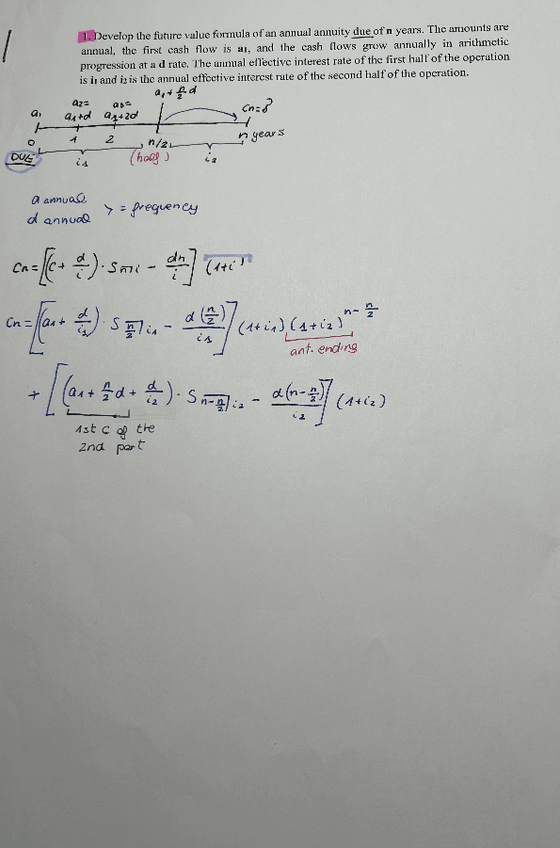 1. Develop the future value formula of an annual annuity due of n years. The amounts are
annual, the first cash flow is a1, and the cash flows grow annually in arithmetic
progression at a d rate. The annual effective interest rate of the first half of the operation
is i1 and i2 is the annual effective interest rate of the second half of the operation.
a1 + n/2 d
a1 a2= a1+d a3= a1+2d Cn=?
0 1 2 n/2 n years
DUE i1 (half) i2
a annual
d annual > = frequency
Cn = [(C + d/i) · S n¬i − dn/i] (1+i)
Cn = [(a1 + d/i1) · S n/2¬i1 − d(n/2)/i1] (1+i1) (1+i2)^(n − n/2)
ant. ending
+ [(a1 + n/2 d + d/i2) · S n−n/2¬i2 − d(n−n/2)/i2] (1+i2)
1st C of the
2nd part